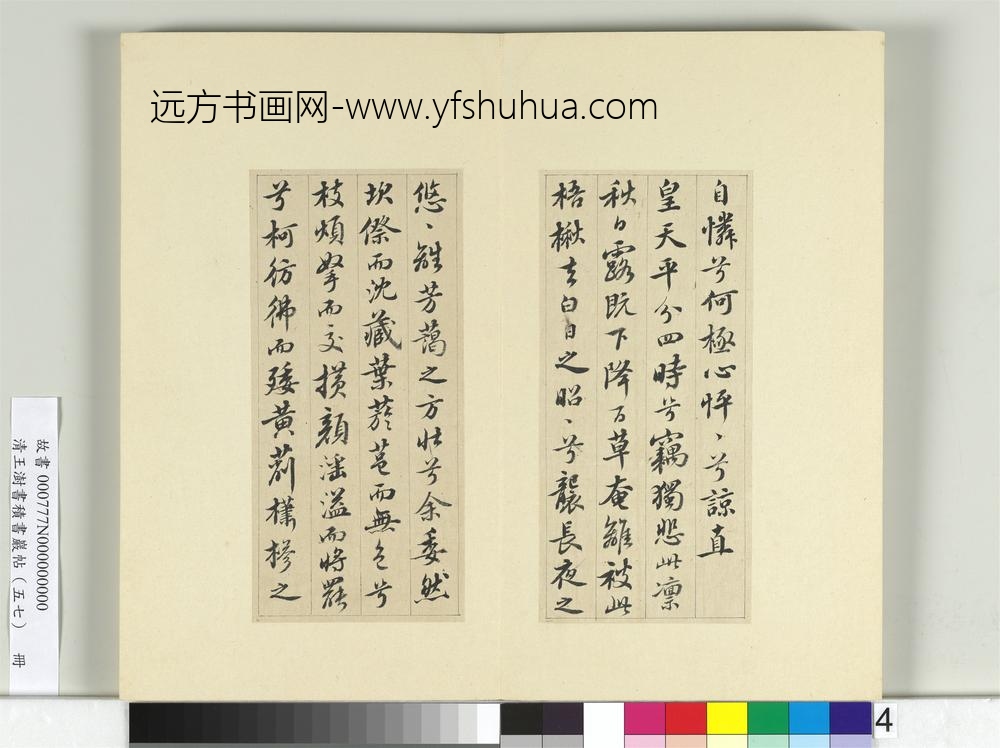 远方书画网-www.yfshuhua.com
自憐兮何極心怦、兮諒直
皇天平分四時兮竊獨悲此凛
秋白露既下降百草奄離被此
梧楸去白日之昭、兮襲長夜之
悠、離芳藹之方壯兮余委然
坎傺而沈藏葉菸邑而無色兮
枝煩挐而交横顔淫溢而將罷
兮柯彷彿而矮黃萷櫹槮之
故書000777N000000000
清王澍書積書巖帖(五七) 冊
4